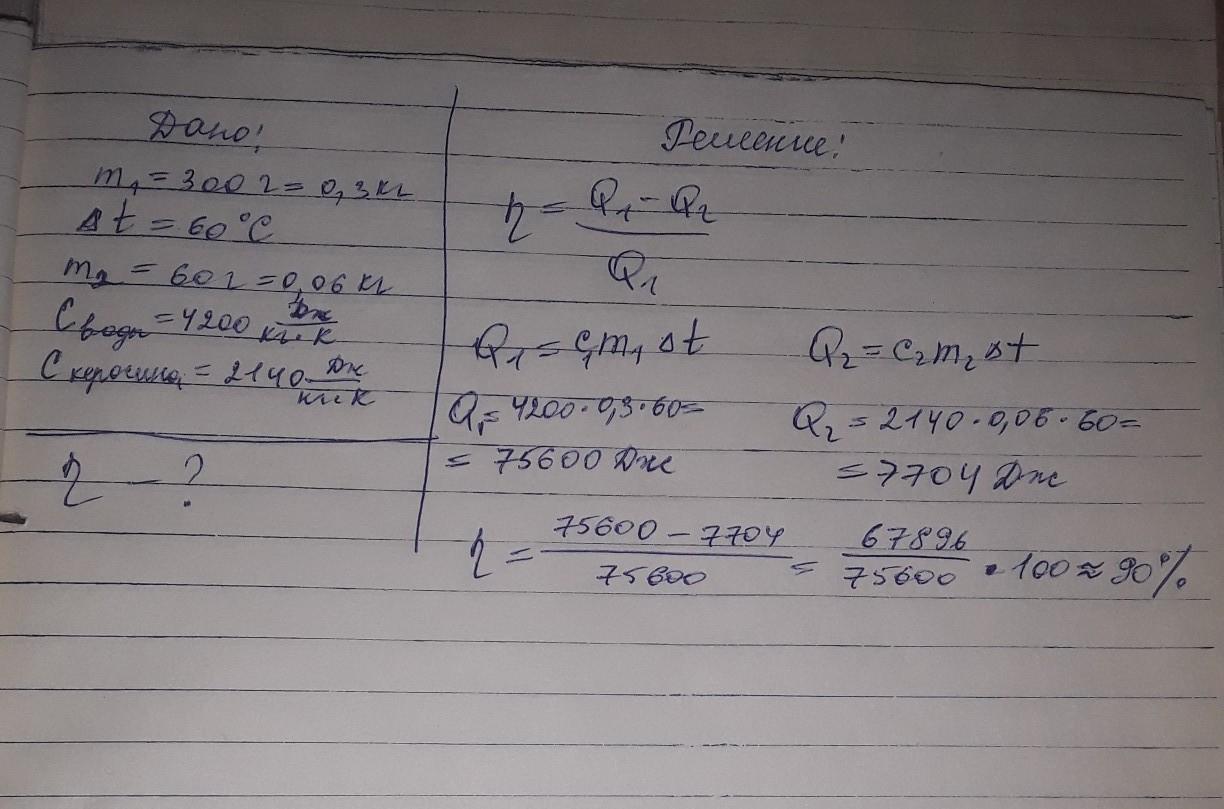 Дано:
m₁ = 300 г = 0,3 кг
Δt = 60°C
m₂ = 60 г = 0,06 кг
Cводы = 4200 Дж/кг·К
Cкеросина = 2140 Дж/кг·К
η – ?
Решение:
η = (Q₁ – Q₂)/Q₁
Q₁ = c₁m₁Δt Q₂ = c₂m₂Δt
Q₁ = 4200·0,3·60 =
= 75600 Дж
Q₂ = 2140·0,06·60 =
= 7704 Дж
η = (75600 – 7704)/75600 = 67896/75600 · 100 ≈ 90%